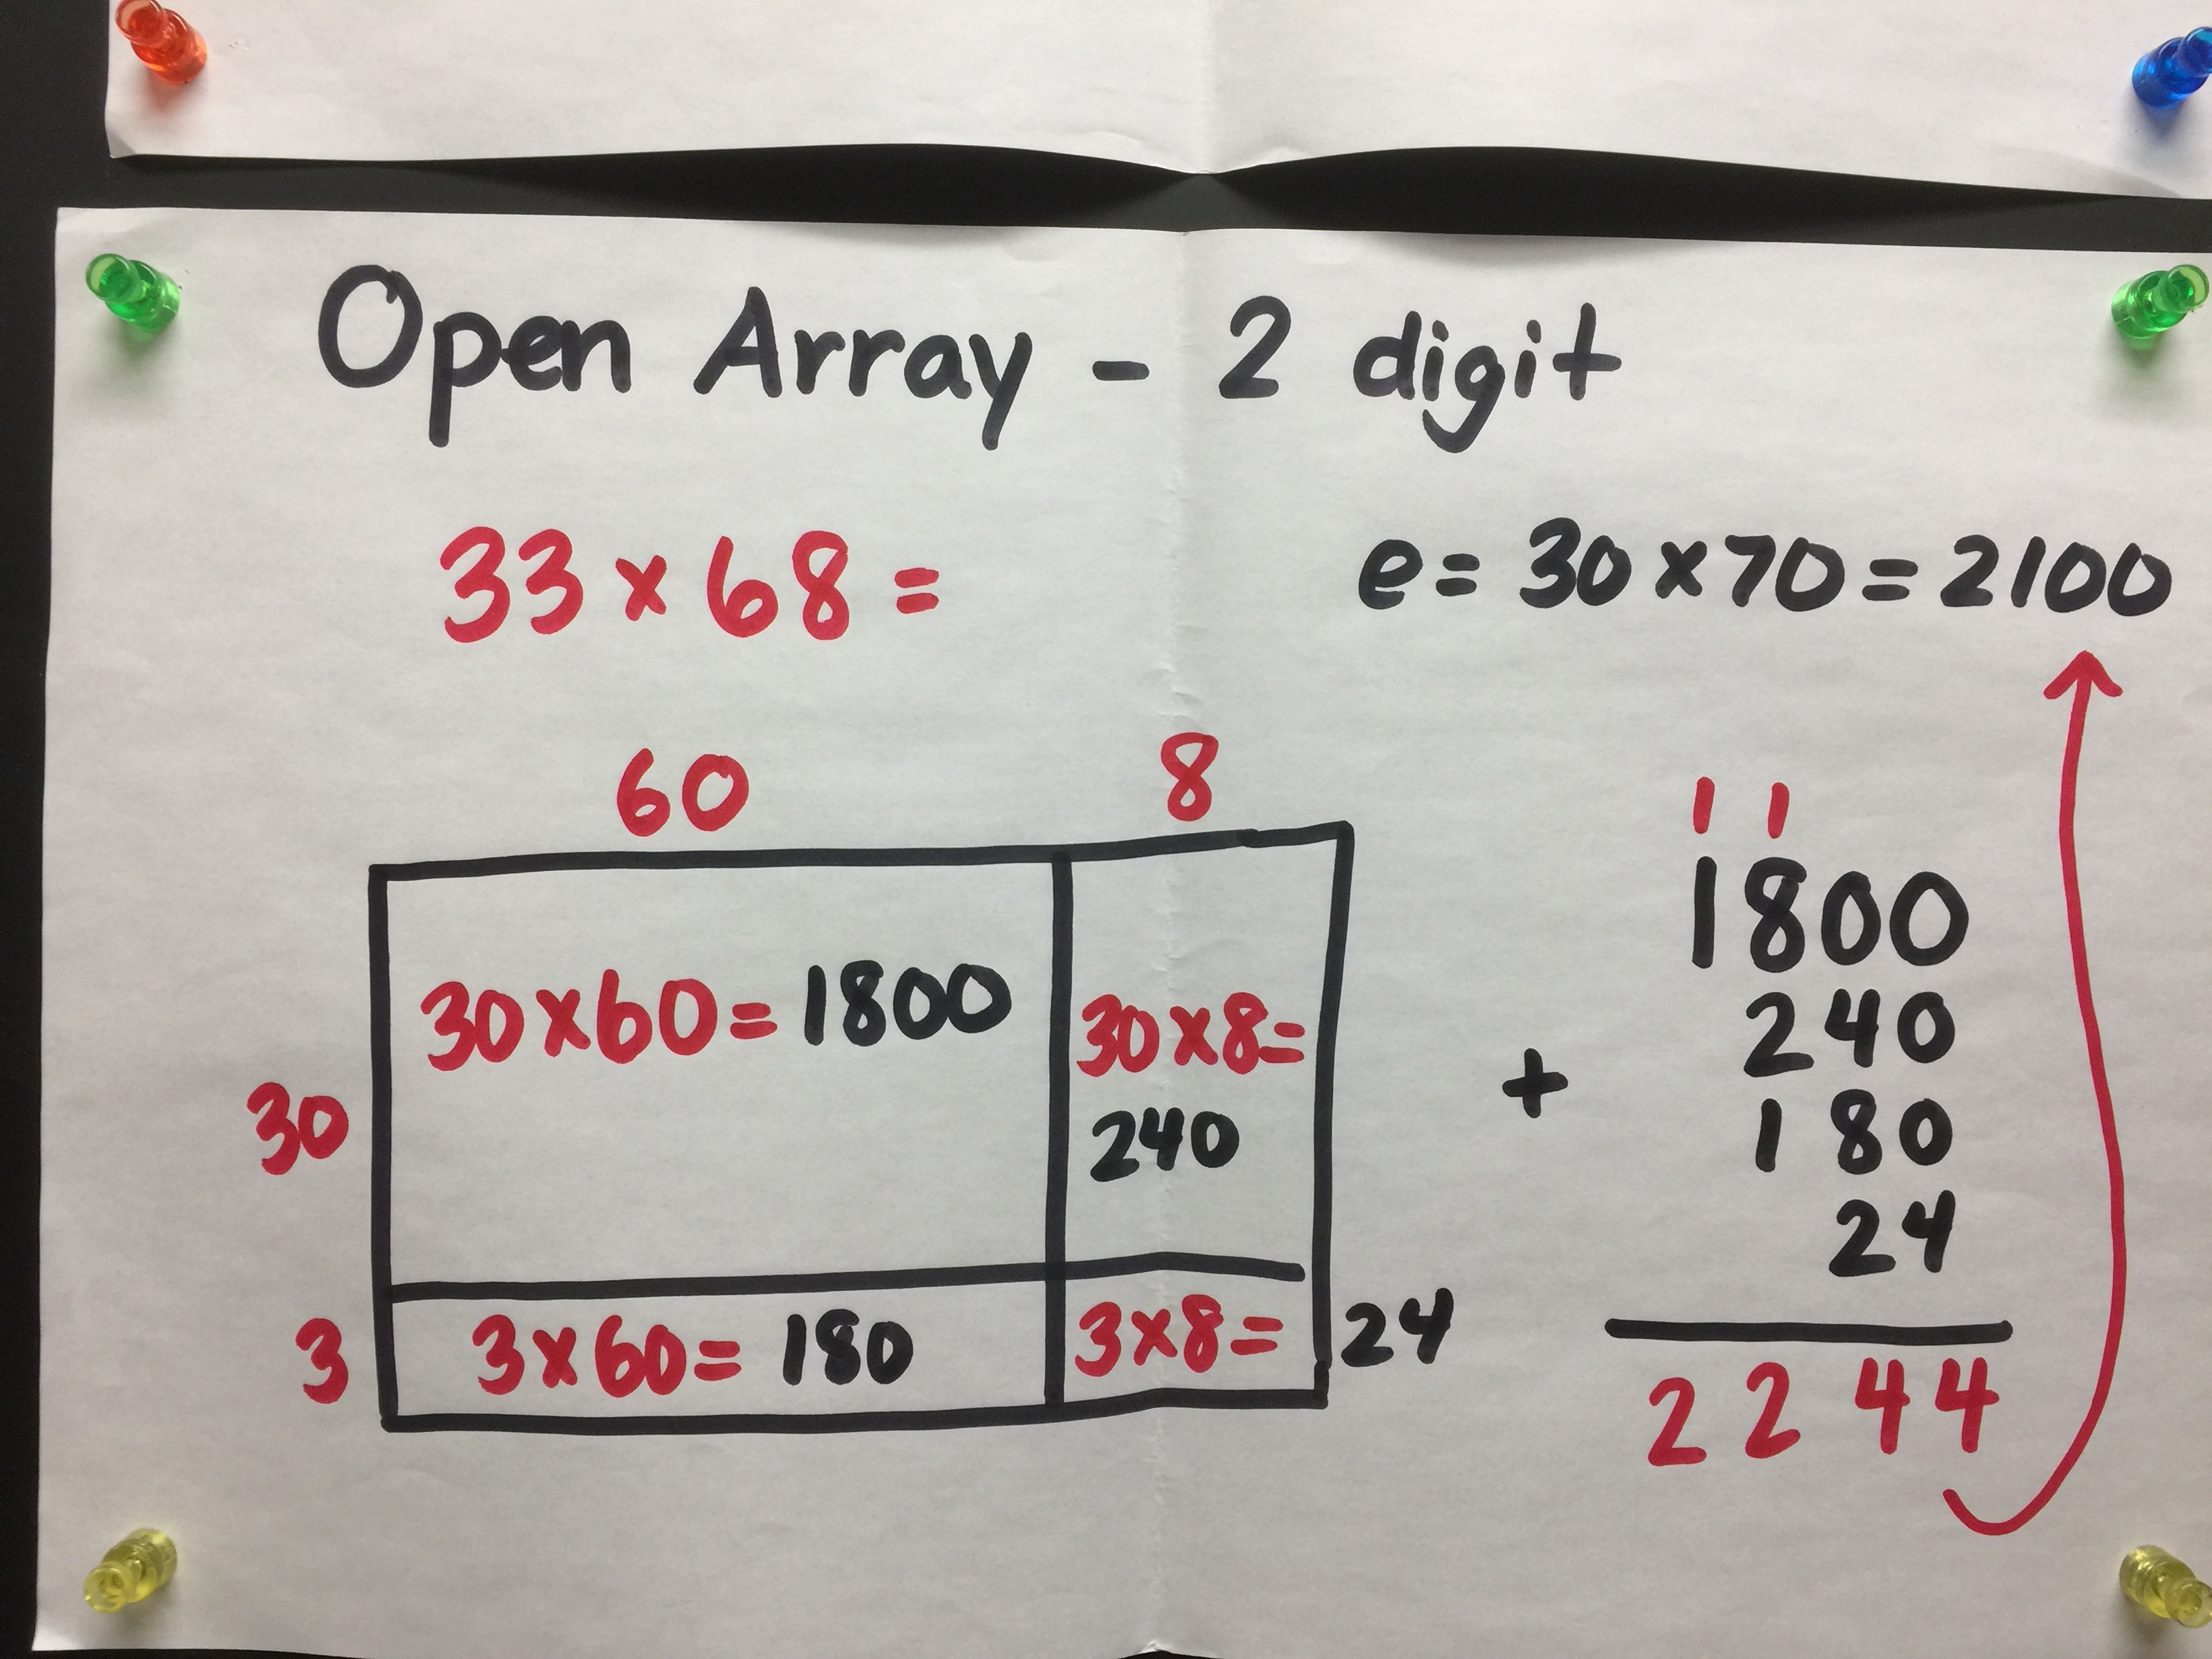 Open Array - 2 digit
33 x 68 =
e = 30 x 70 = 2100
60 8
30 30 x 60 = 1800 30 x 8 =
240
3 3 x 60 = 180 3 x 8 = 24
1 1
1800
240
+ 180
24
2244